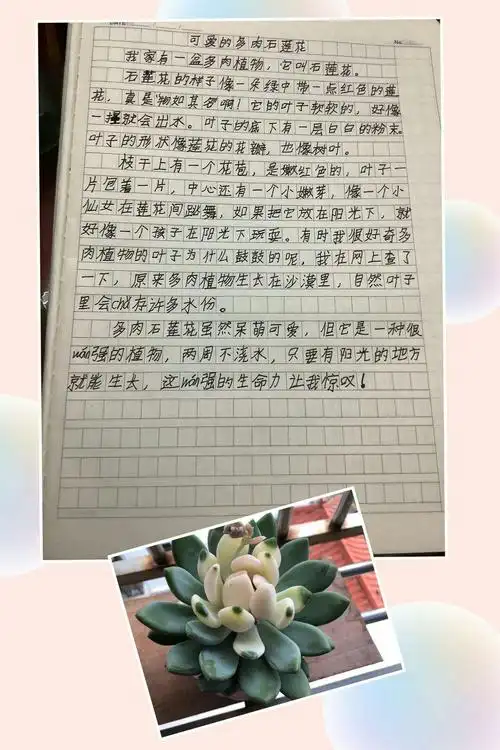 DATE
No
可爱的多肉石莲花
我家有一盆多肉植物，它叫石莲花。
石莲花的样子像一朵绿中带一点红色的莲
花，真是"物如其名"啊！它的叶子软软的，好像
一撞就会出水。叶子的底下有一层白白的粉末。
叶子的形状像莲花的花瓣，也像树叶。
枝干上有一个花苞，是嫩红色的，叶子一
片包着一片，中心还有一个小嫩芽，像一个小
仙女在莲花间跳舞，如果把它放在阳光下，就
好像一个孩子在阳光下玩耍。有时我很好奇多
肉植物的叶子为什么鼓鼓的呢，我在网上查了
一下，原来多肉植物生长在沙漠里，自然叶子
里会chǔ存许多水份。
多肉石莲花虽然呆萌可爱，但它是一种很
wán强的植物，两周不浇水，只要有阳光的地方
就能生长，这wán强的生命力让我惊叹！